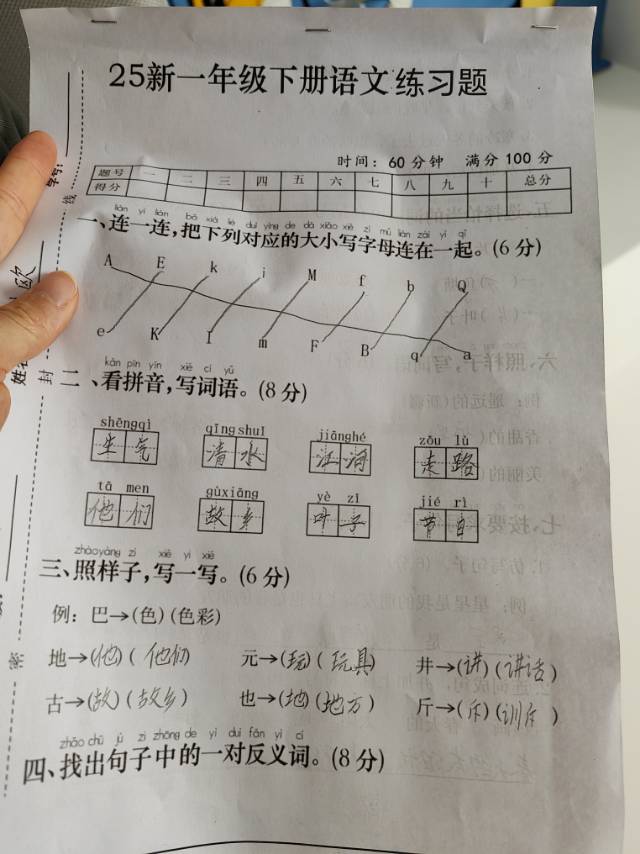 25新一年级下册语文练习题
时间：60分钟 满分100分
题号 一 二 三 四 五 六 七 八 九 十 总分
得分
lián yi lián bǎ xià liè duì yìng de dà xiǎo xiě zì mǔ lián zài yì qǐ
一、连一连，把下列对应的大小写字母连在一起。(6分)
A E k i M f b Q
e K I m F B q a
kàn pīn yīn xiě cí yǔ
二、看拼音，写词语。(8分)
shēngqì qīngshuǐ jiānghé zǒu lù
生气 清水 江河 走路
tā men gùxiāng yè zǐ jié rì
他们 故乡 叶子 节日
zhàoyàng zi xiě yì xiě
三、照样子，写一写。(6分)
例：巴→(色)(色彩)
地→(他)(他们) 元→(玩)(玩具) 井→(讲)(讲话)
古→(故)(故乡) 也→(地)(地方) 斤→(斥)(训斥)
zhǎo chū jù zi zhōng de yí duì fǎn yì cí
四、找出句子中的一对反义词。(8分)
学号：
线
封
密